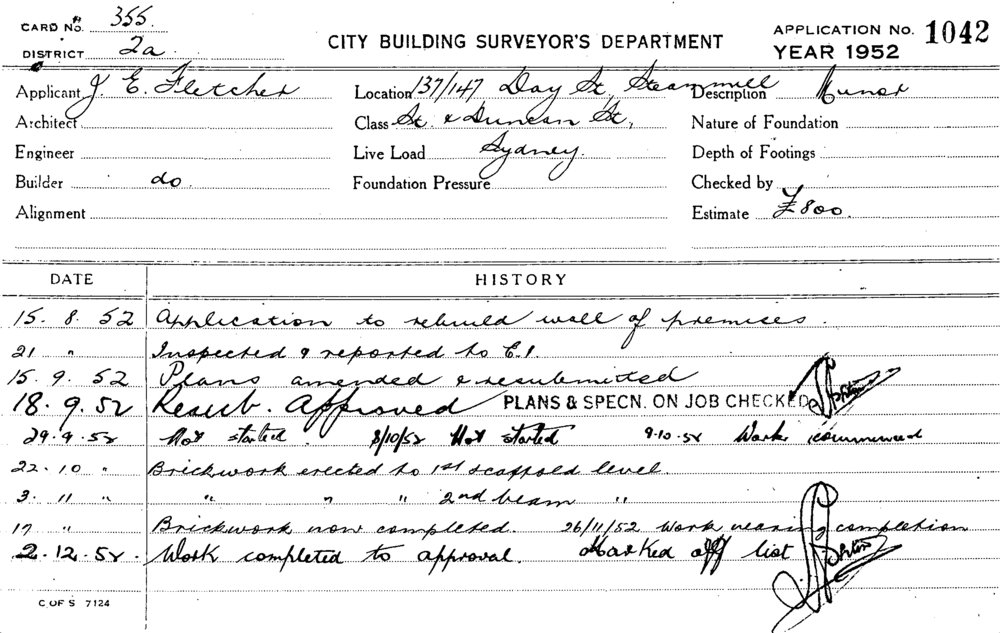 CARD No. 355.
DISTRICT 2a.
CITY BUILDING SURVEYOR'S DEPARTMENT
APPLICATION No. 1042
YEAR 1952
Applicant J. E. Fletcher Location 137/147 Day St, Steammill Description Minor
Architect Class St. & Duncan St, Nature of Foundation
Engineer Live Load Sydney. Depth of Footings
Builder do. Foundation Pressure Checked by
Alignment Estimate £800.
DATE HISTORY
15. 8. 52 Application to rebuild wall of premises.
21 " Inspected & reported to E.1.
15. 9. 52 Plans amended & resubmitted
18. 9. 52 Resub. Approved PLANS & SPECN. ON JOB CHECKED
29. 9. 52 Not started. 8/10/52 Not started 9.10.52 Work commenced
22. 10 " Brickwork erected to 1st scaffold level.
3. 11 " " " " 2nd beam "
17 " Brickwork now completed. 26/11/52 Work nearing completion
2. 12. 52. Work completed to approval. Marked off list
C OF S 7124